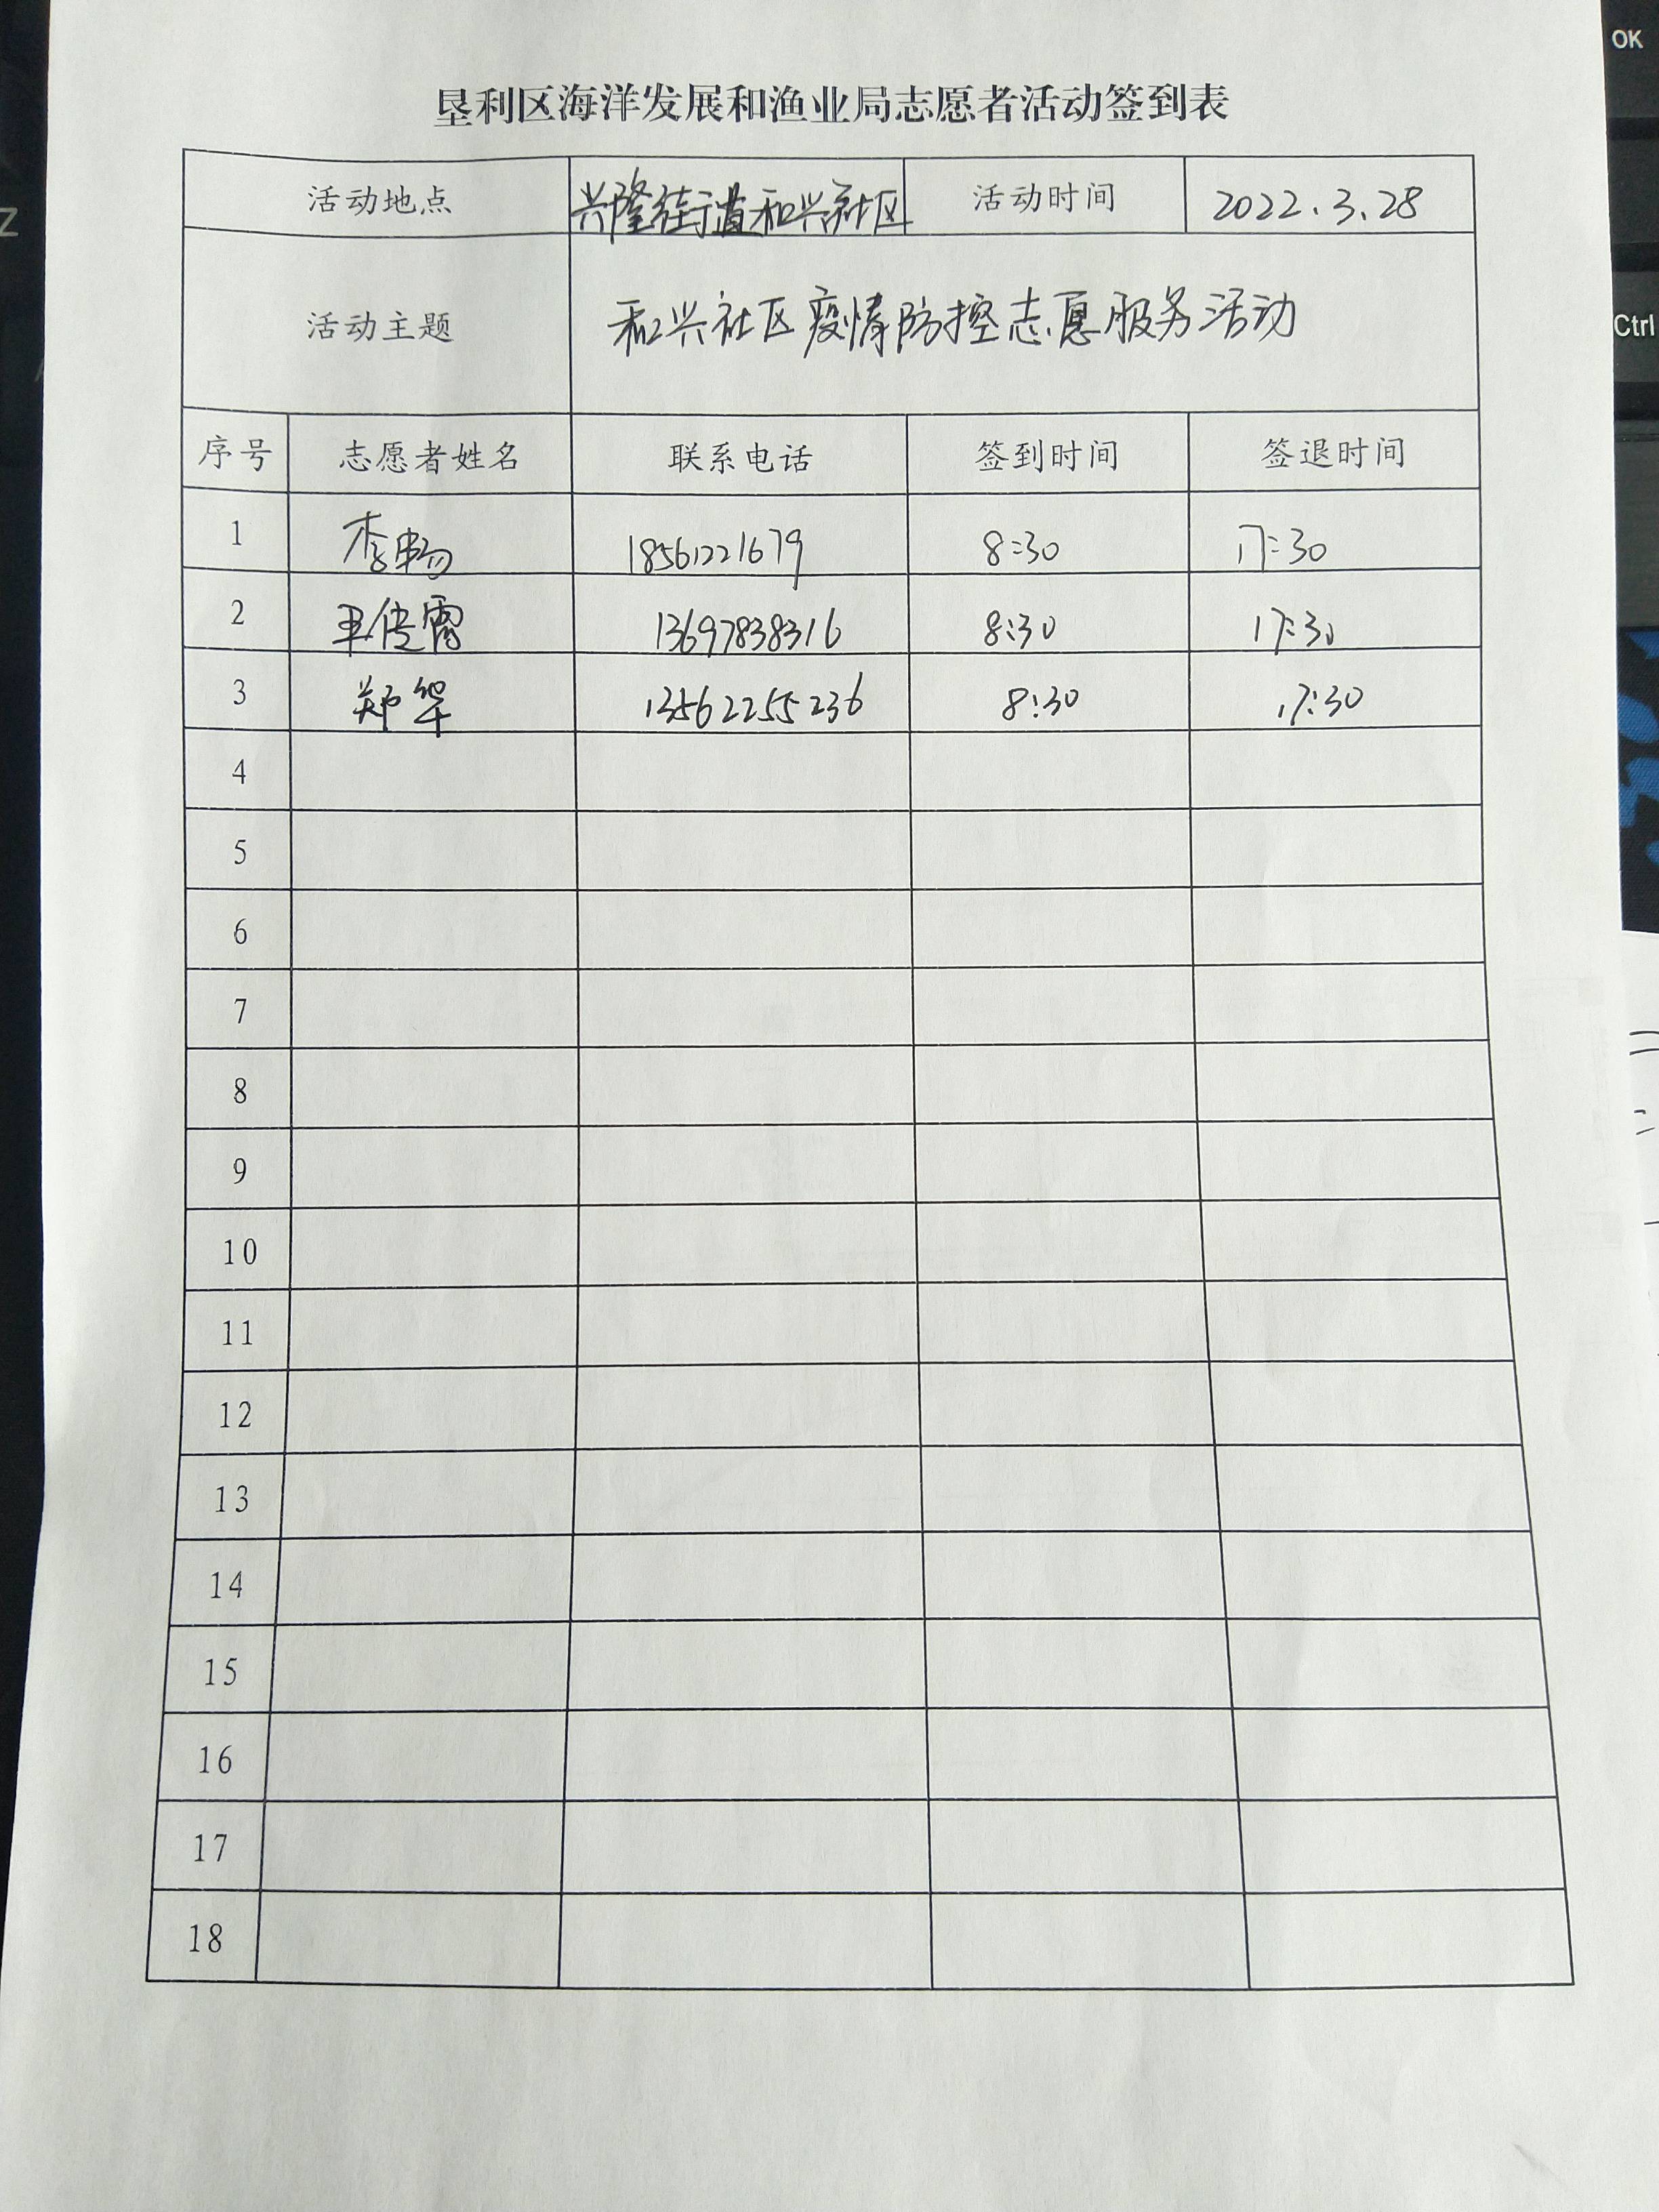 垦利区海洋发展和渔业局志愿者活动签到表
活动地点 兴隆街道和兴社区 活动时间 2022.3.28
活动主题 和兴社区疫情防控志愿服务活动
序号 志愿者姓名 联系电话 签到时间 签退时间
1 李畅 18561221679 8:30 17:30
2 王传霄 13697838316 8:30 17:30
3 郑华 13562255236 8:30 17:30
4
5
6
7
8
9
10
11
12
13
14
15
16
17
18
OK
Ctrl
Z